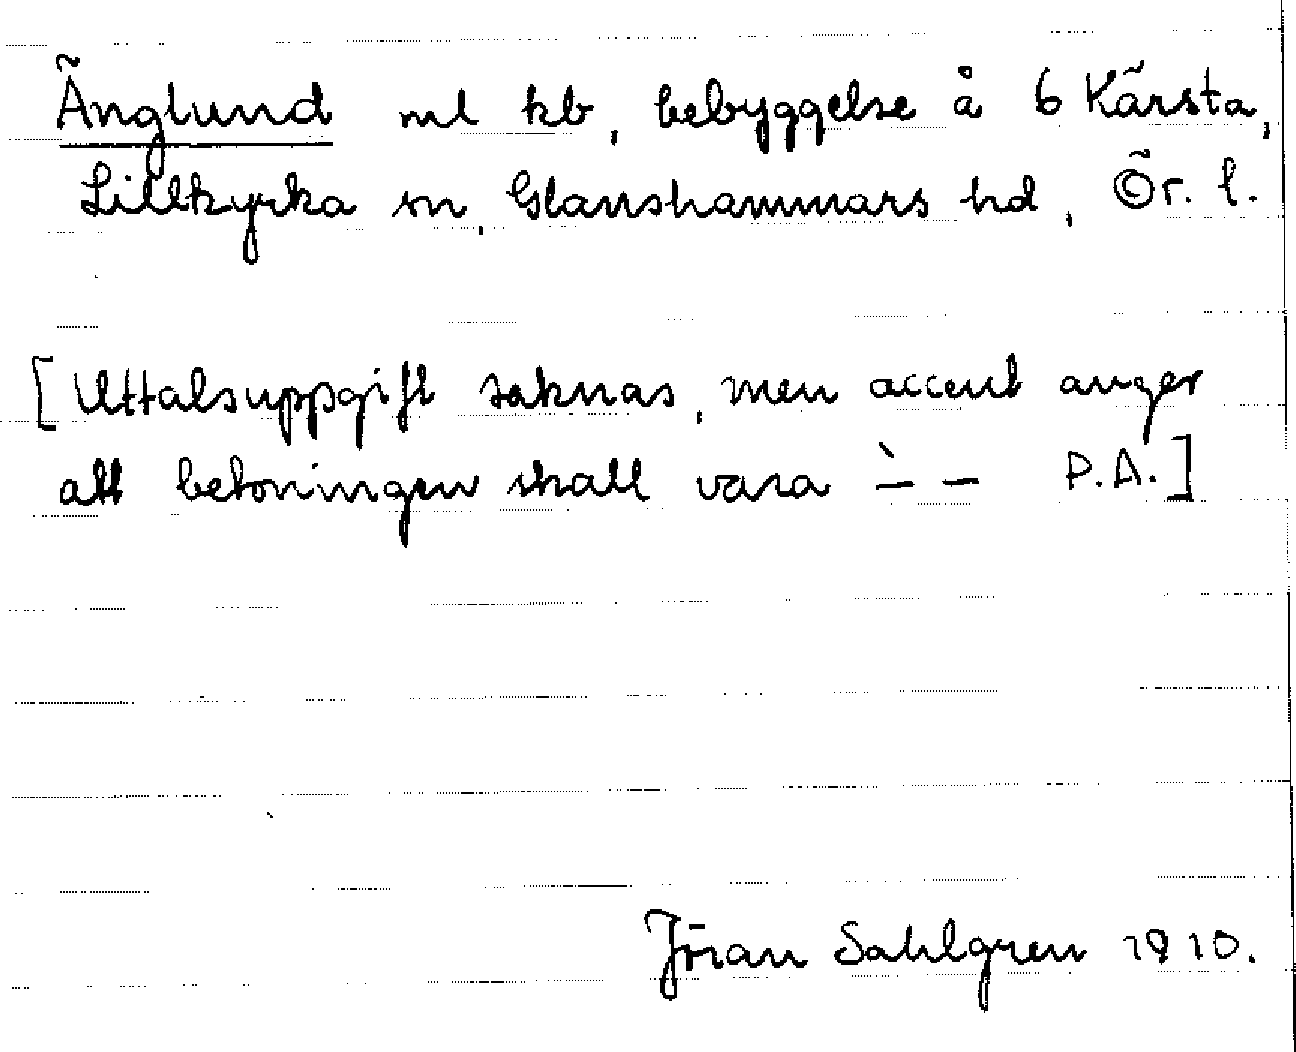 Änglund ml kb, bebyggelse å 6 Kärsta,
Lillkyrka sn, Glanshammars hd, Ör. l.
[Uttalsuppgift saknas, men accent anger
att betoningen skall vara ̀– – P.A.]
Jöran Sahlgren 1910.